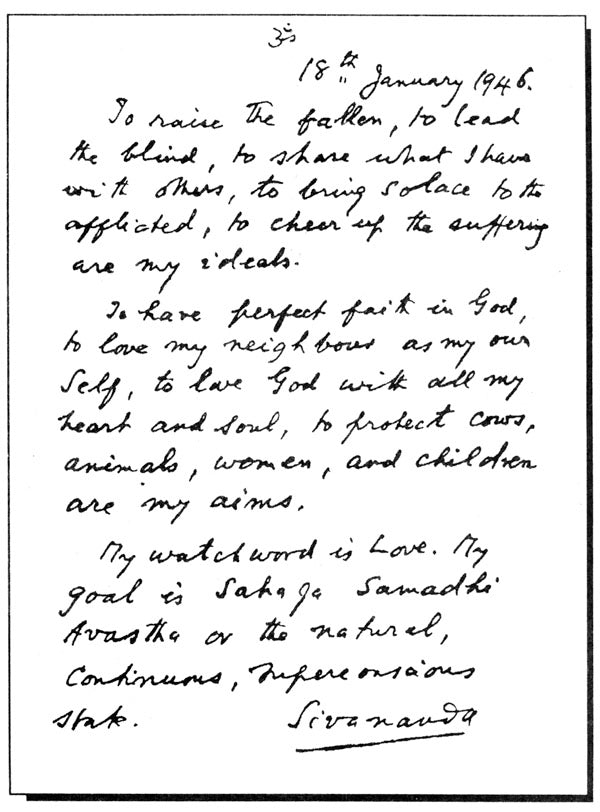 ॐ
18th January 1946.
To raise the fallen, to lead
the blind, to share what I have
with others, to bring solace to the
afflicted, to cheer up the suffering
are my ideals.
To have perfect faith in God,
to love my neighbour as my own
Self, to love God with all my
heart and soul, to protect cows,
animals, women, and children
are my aims.
My watchword is Love. My
goal is Sahaja Samadhi
Avastha or the natural,
Continuous, superconscious
state. Sivananda